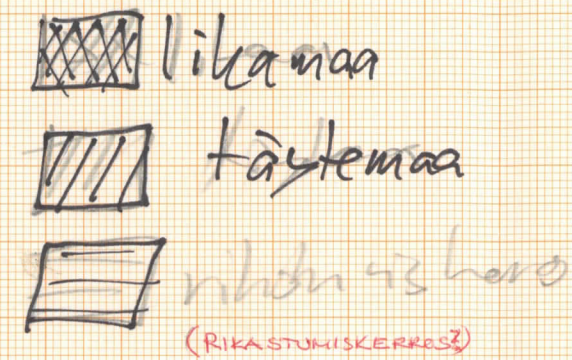 likamaa
täytemaa
(RIKASTUMISKERROS?)